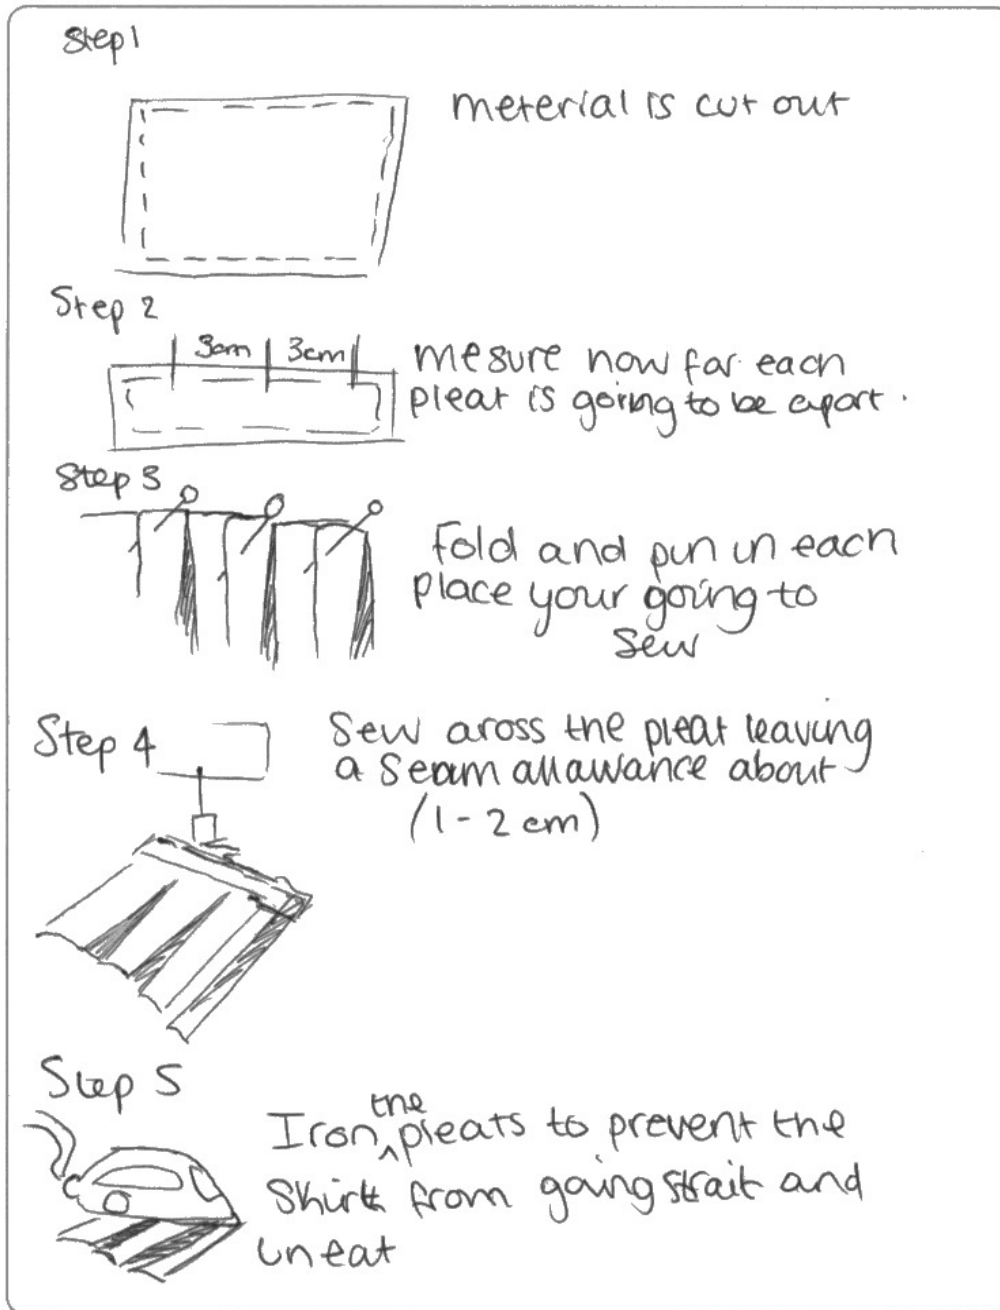 Step 1
meterial is cut out
Step 2
3cm 3cm
mesure how far each
pleat is going to be apart.
Step 3
Fold and pin in each
place your going to
sew
Step 4
Sew aross the pleat leaving
a seam allawance about
(1-2 cm)
Step 5
Iron the pleats to prevent the
Skirt from going strait and
uneat